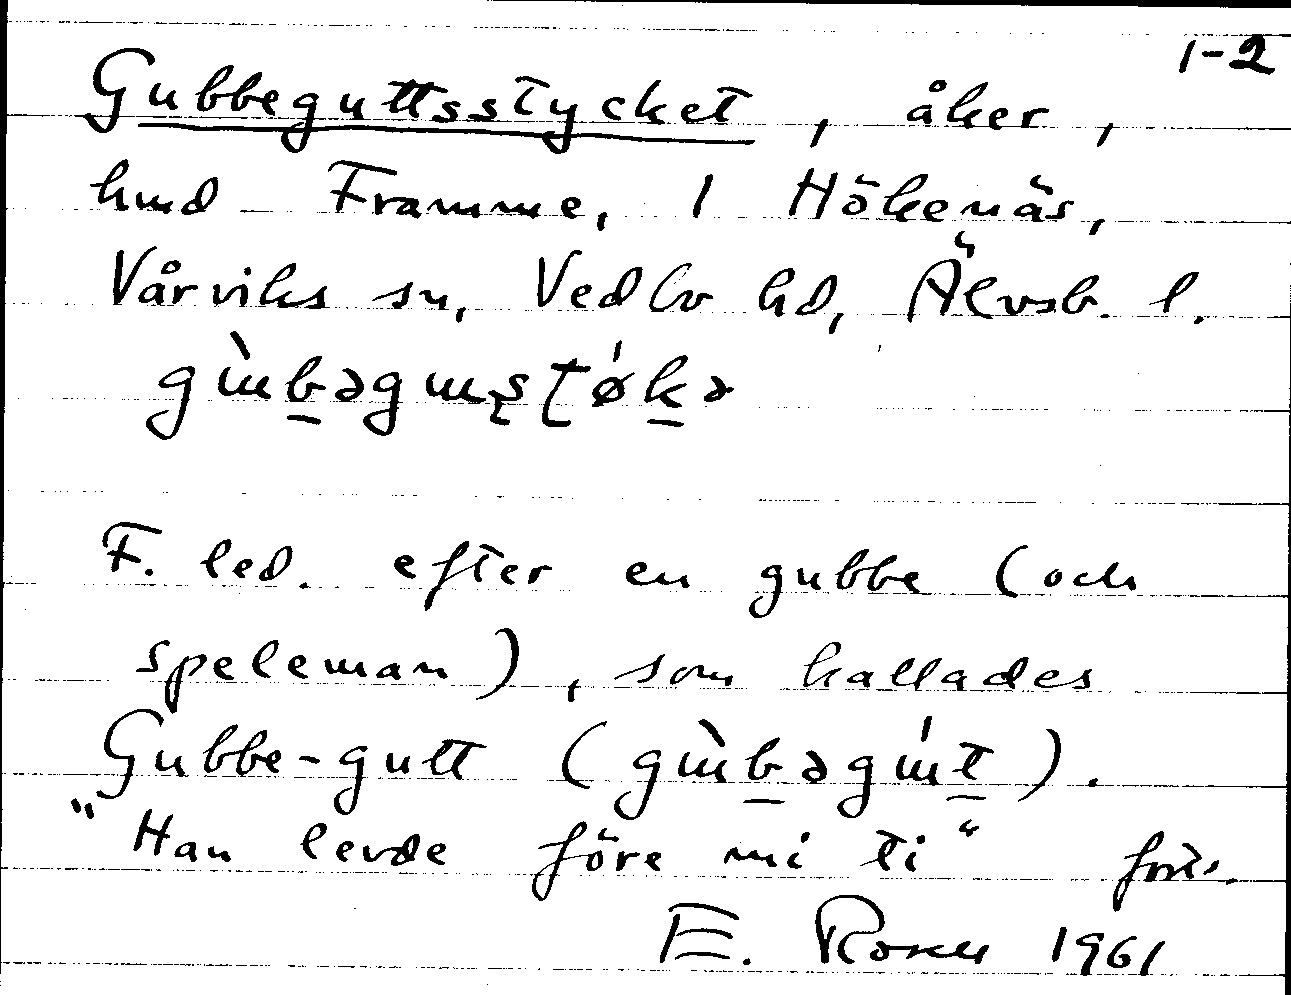 1-2
Gubbeguttsstycket, åker,
hmd Framme, 1 Hökenäs,
Vårviks sn, Vedbo hd, Älvsb. l.
F. led. efter en gubbe (och
speleman), som kallades
Gubbe-gutt (gɯ̀b̲əgɯ́t̲).
"Han levde före mi ti" forts.
E. 1961